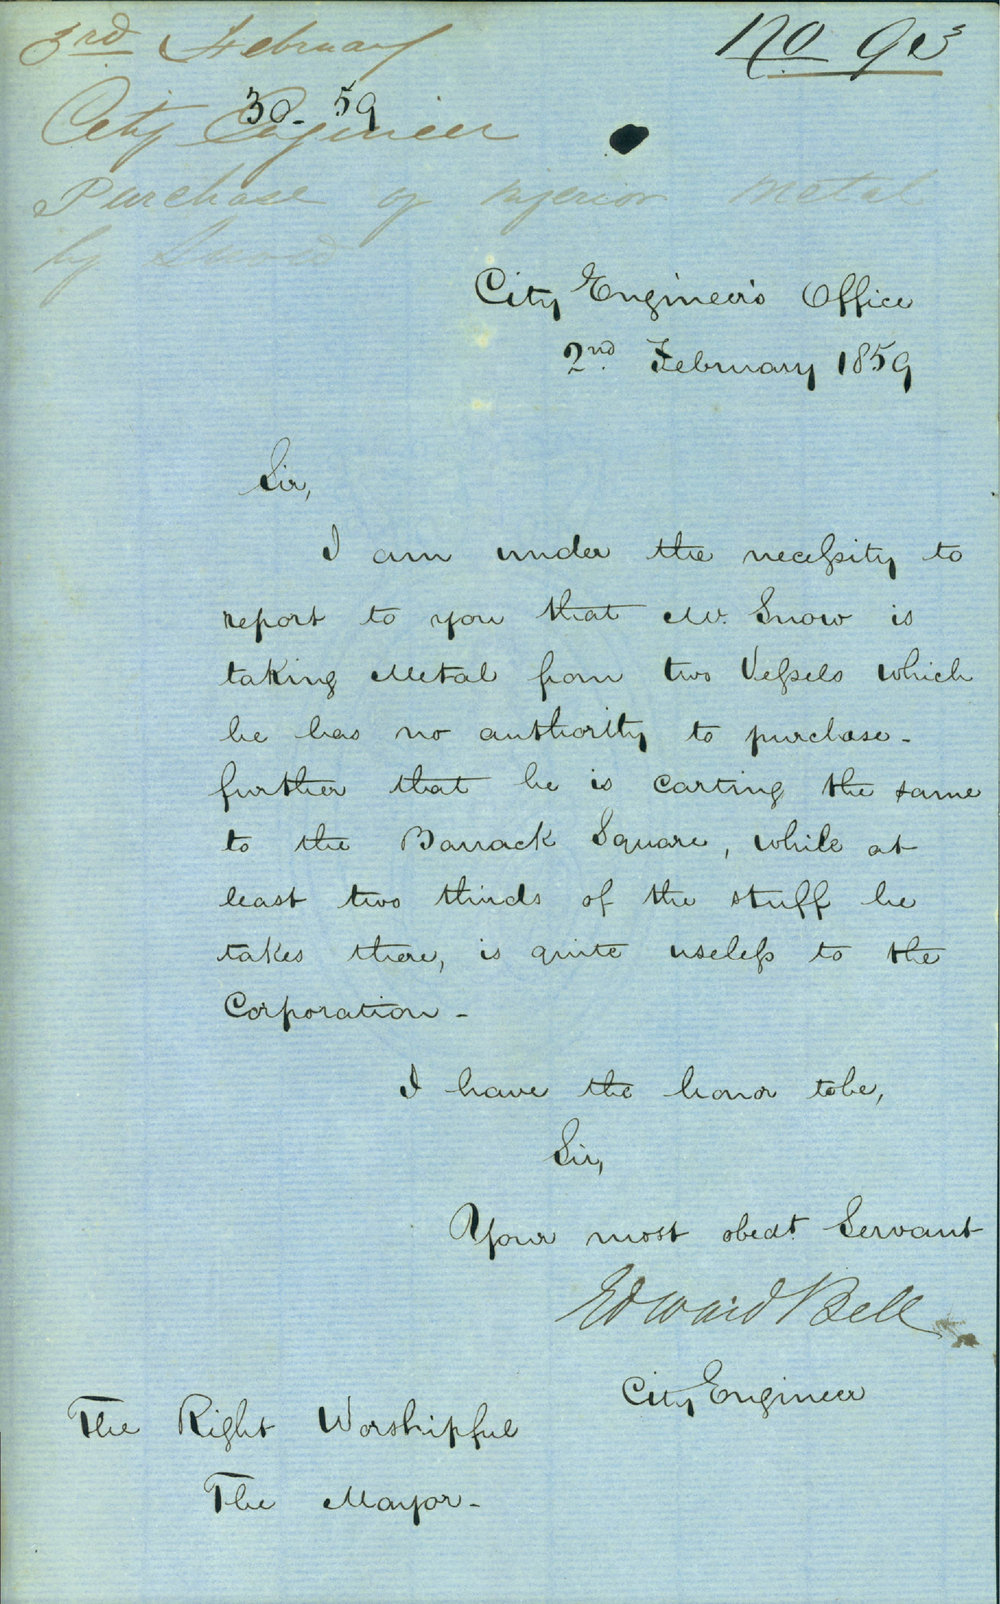 3rd February
No 93
30. 59
City Engineer
Purchase of inferior metal
by Snow
City Engineer's Office
2nd February 1859
Sir,
I am under the necessity to
report to you that Mr. Snow is
taking Metal from two Vessels which
he has no authority to purchase -
further that he is carting the same
to the Barrack Square, while at
least two thirds of the stuff he
takes there, is quite useless to the
Corporation -
I have the honor to be,
Sir,
Your most obedt. Servant
Edward Bell
City Engineer
The Right Worshipful
The Mayor -